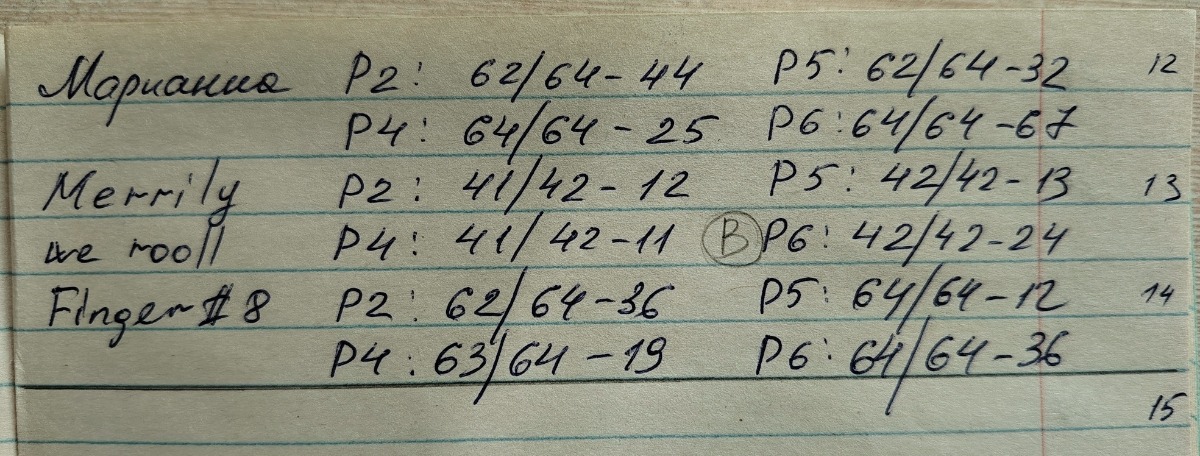 Марианна P2: 62/64-44 P5: 62/64-32 12
P4: 64/64-25 P6: 64/64-67
Merrily P2: 41/42-12 P5: 42/42-13 13
we rooll P4: 41/42-11 B P6: 42/42-24
Finger#8 P2: 62/64-36 P5: 64/64-12 14
P4: 63/64-19 P6: 64/64-36
15